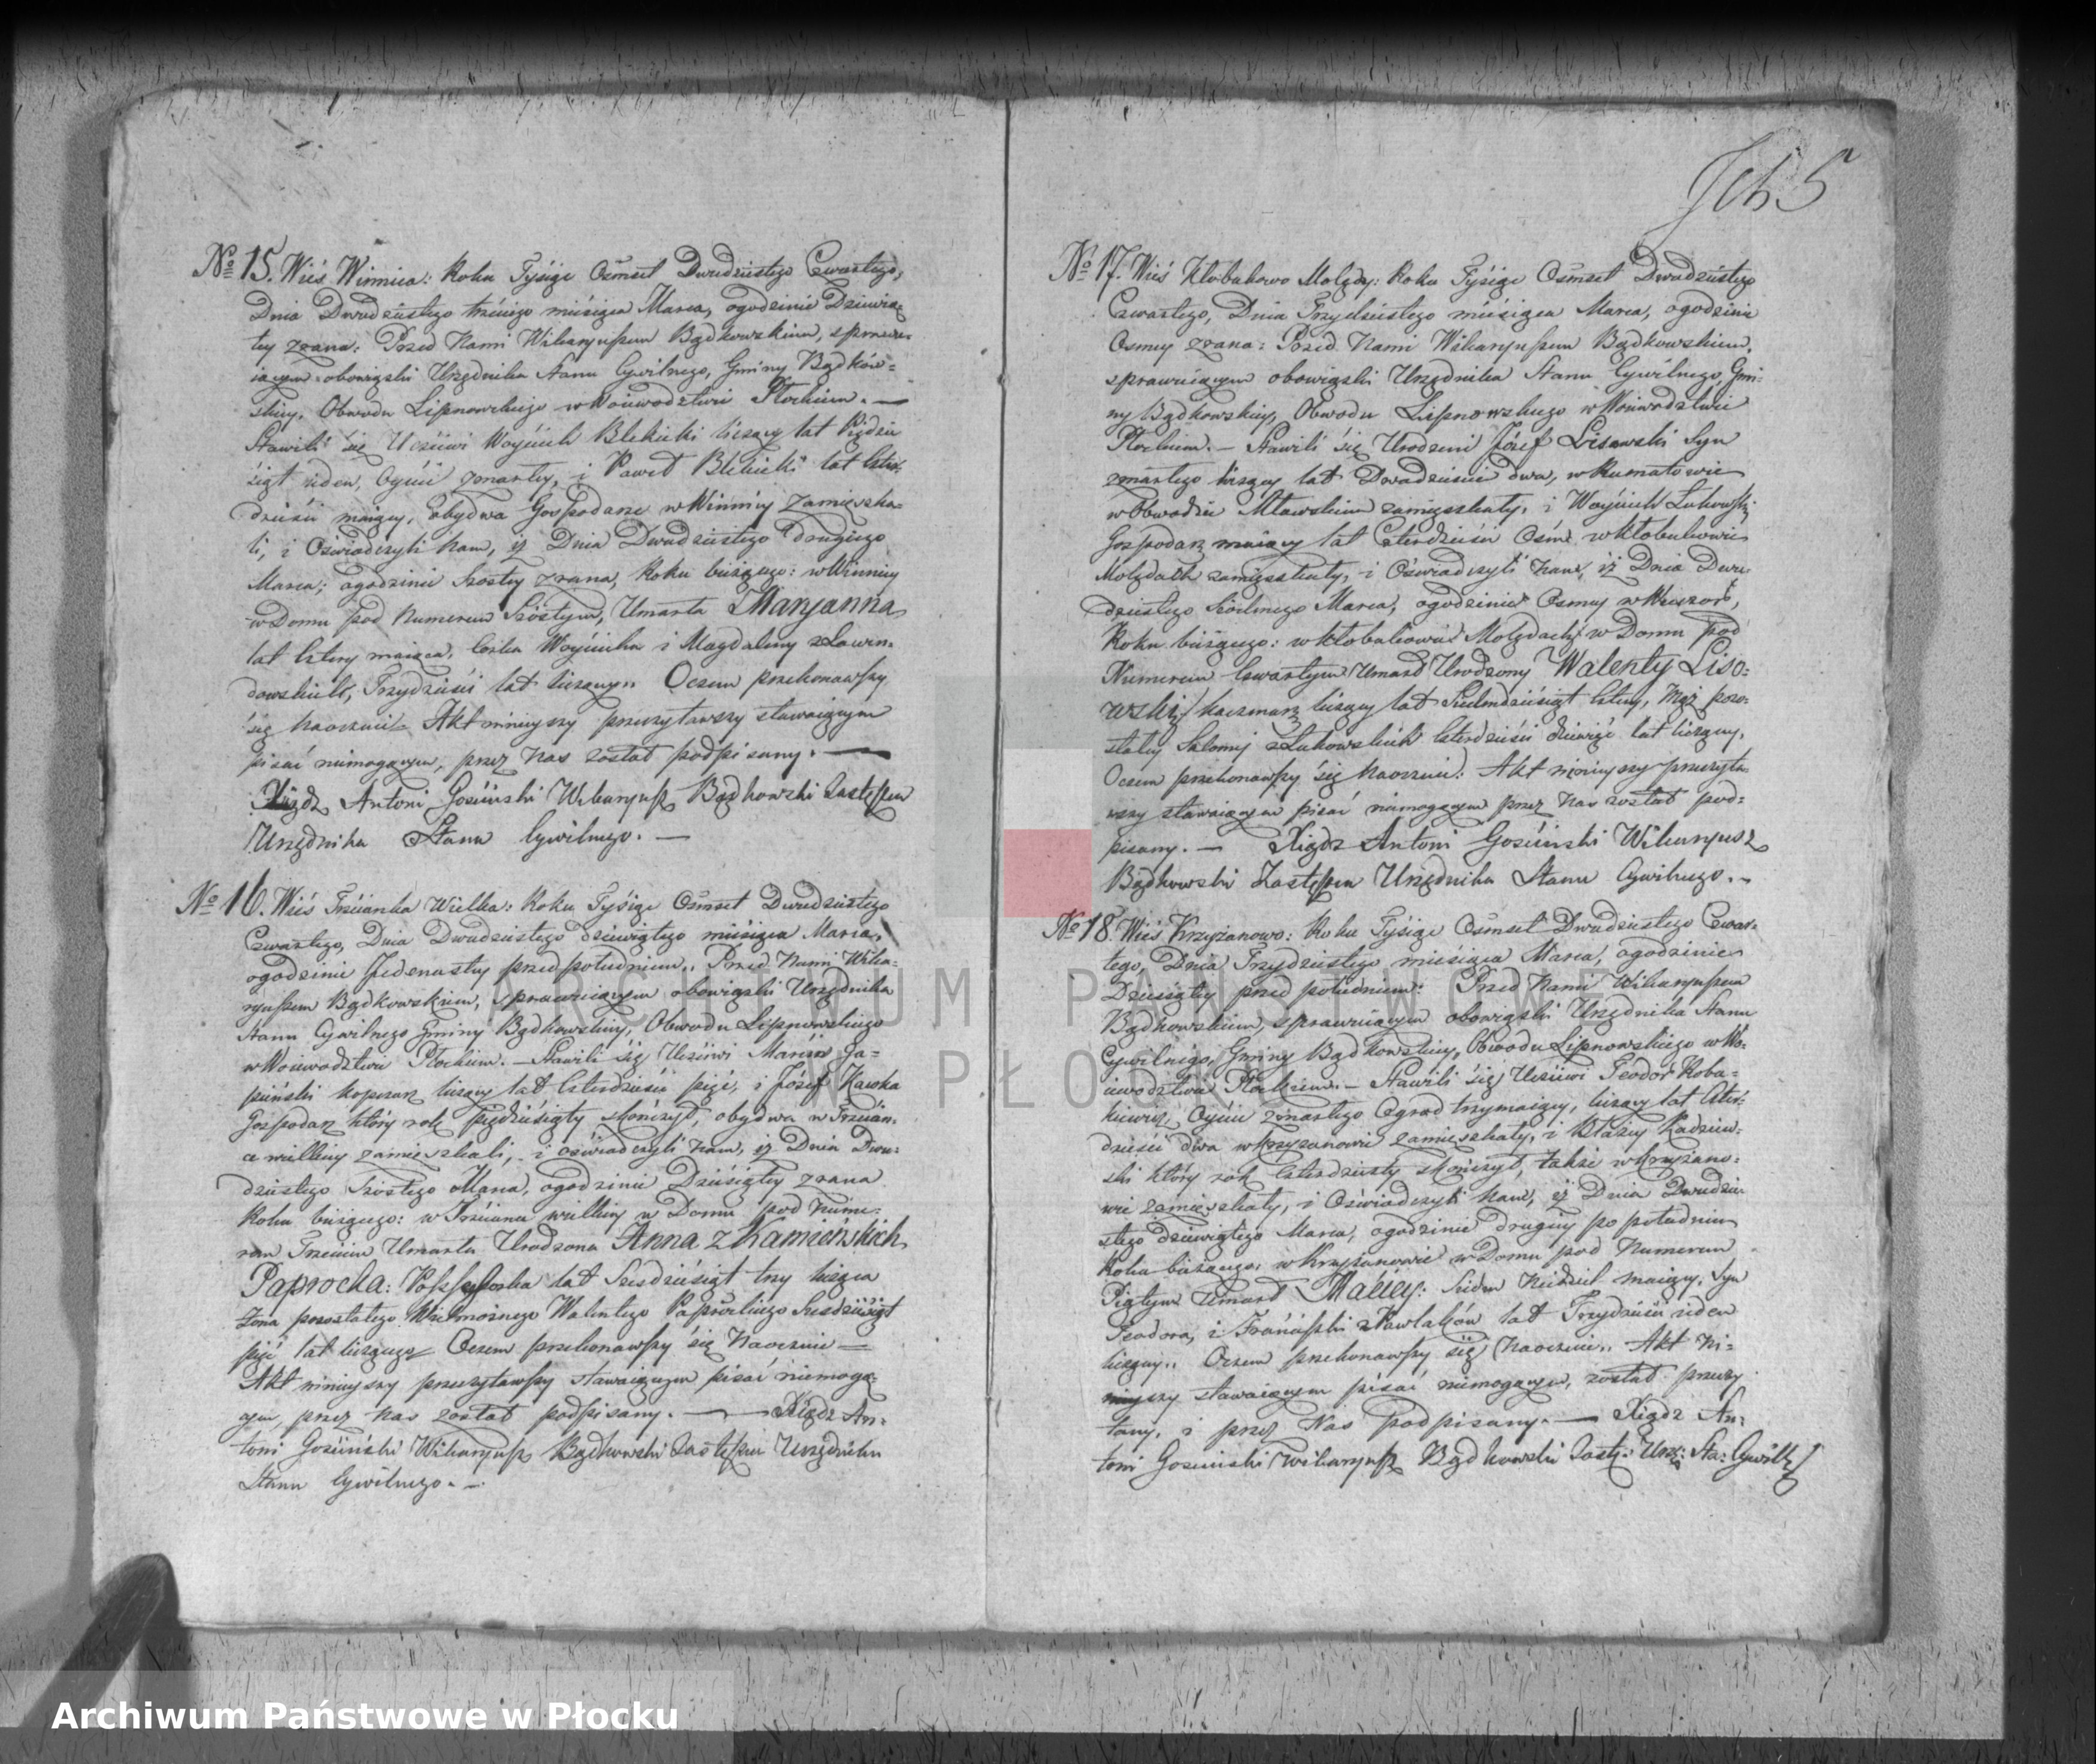 № 15. Wieś Winnica: Roku Tysiąc Ośmset Dwudziestego Czwartego,
Dnia Dwudziestego trzéciego miesiąca Marca, ogodzinie Dziewią-
tey zrana: Przed Nami Wikaryuszem Bądkowskim, sprawu-
iącym obowiąski Urzędnika Stanu Cywilnego, Gminy Bądkow-
skiey, Obwodu Lipnowskiego w Woiewodztwie Płockim. —
Stawili się Uczciwi Woyciech Blekicki liczący lat Piędzie-
siąt ieden, Oyciec zmarłey, i Paweł Blekicki lat czter-
dzieści maiący, obydwa Gospodarze w Winnicy zamieszka-
li, i Oświadczyli nam, iż Dnia Dwudziestego drugiego
Marca, ogodzinie Szóstey zrana, Roku bieżącego: w Winnicy
w Domu pod Numerem Szóstym, Umarła Maryanna
lat cztery maiąca, Córka Woyciecha i Magdaleny z Lewan-
dowskich, Trzydzieści lat liczącey.. Oczem przekonawszy
się Naocznie Akt ninieyszy przeczytawszy stawaiącym
pisać niemogącym, przez Nas został podpisany. —
Xiądz Antoni Gosiński Wikaryusz Bądkowski Zastępca
Urzędnika Stanu Cywilnego. —
№ 16. Wieś Trzcianka Wielka: Roku Tysiąc Ośmset Dwudziestego
Czwartego, Dnia Dwudziestego dziewiątego miesiąca Marca,
ogodzinie Jedenastey przed południem.. Przed Nami Wika-
ryuszem Bądkowskim, sprawuiącym obowiąski Urzędnika
Stanu Cywilnego Gminy Bądkowskiey, Obwodu Lipnowskiego
w Woiewodztwie Płockim. — Stawili się Uczciwi Marcin Ga-
piński kopczarz liczący lat Czterdzieści pięć, i Józef Kawka
Gospodarz który rok piędziesiąty skończył, obydwa w Trzcian-
ce wielkiey zamieszkali, i oświadczyli nam, iż Dnia Dwu-
dziestego Szóstego Marca, ogodzinie Dziesiątey zrana
Roku bieżącego: w Trzciance wielkiey w Domu pod Nume-
rem Trzecim Umarła Urodzona Anna z Kamieńskich
Paprocka: lat Sześdziesiąt trzy licząca
Żona pozostałego Wielmożnego Walentego Paprockiego Sześdziesiąt
pięć lat liczącego Oczem przekonawszy się Naocznie —
Akt ninieyszy przeczytawszy stawaiącym pisać niemogą-
cym, przez Nas został podpisany. — Xiądz An-
toni Gosiński Wikaryusz Bądkowski Zastępca Urzędnika
Stanu Cywilnego. —
5
№ 17. Wieś Kłobukowo Molędy: Roku Tysiąc Ośmset Dwudziestego
Czwartego, Dnia Trzydziestego miesiąca Marca, ogodzinie
Osmey zrana: Przed Nami Wikaryuszem Bądkowskim,
sprawuiącym obowiąski Urzędnika Stanu Cywilnego, Gmi-
ny Bądkowskiey, Obwodu Lipnowskiego w Woiewodztwie
Płockim. — Stawili się Urodzeni Józef Lisowski Syn
zmarłego liczący lat Dwadzieścia dwa, w Rumatowie
w Obwodzie Mławskim zamieszkały, i Woyciech Łukowski
Gospodarz maiący lat Czterdzieści Ośm w Kłobukowie
Molędach zamieszkały, i Oświadczyli Nam, iż Dnia Dwu-
dziestego Siódmego Marca, ogodzinie Osmey w Wieczor,
Roku bieżącego: w Kłobukowie Molędach w Domu pod
Numerem Czwartym Umarł Urodzony Walenty Liso-
wski, kaczmarz liczący lat Siedmdziesiąt cztery, Mąż pozo-
stałey Salomei z Łukowskich Czterdzieści dziewięć lat liczącey.
Oczem przekonawszy się Naocznie: Akt ninieyszy przeczyta-
wszy stawaiącym pisać niemogącym przez Nas został pod-
pisany. — Xiądz Antoni Gosiński Wikaryusz
Bądkowski Zastępca Urzędnika Stanu Cywilnego. —
№ 18. Wieś Krzyżanowo: Roku Tysiąc Ośmset Dwudziestego Czwar-
tego, Dnia Trzydziestego miesiąca Marca, ogodzinie
Dziesiątey przed południem: Przed Nami Wikaryuszem
Bądkowskim, sprawuiącym obowiąski Urzędnika Stanu
Cywilnego, Gminy Bądkowskiey, Obwodu Lipnowskiego w Wo-
iewodztwie Płockim. — Stawili się Uczciwi Teodor Koba-
kiewicz, Oyciec zmarłego Ogrod trzymaiący, liczący lat Czter-
dzieści dwa w Krzyżanowie zamieszkały, i Błażey Radziew-
ski który rok Czterdziesty skończył, także w Krzyżano-
wie zamieszkały, i Oświadczyli Nam, iż Dnia Dwudzie-
stego dziewiątego Marca, ogodzinie drugiey po południu
Roku bieżącego, w Krzyżanowie w Domu pod Numerem
Piątym Umarł Maciey: Siedm Niedziel maiący, Syn
Teodora, i Franciszki z Pawlaków lat Trzydzieści ieden
liczącey.. Oczem przekonawszy się Naocznie.. Akt ni-
nieyszy stawaiącym pisać niemogącym, został przeczy-
tany, i przez Nas podpisany. — Xiądz An-
toni Gosiński Wikaryusz Bądkowski Zastę: Urzę: Sta: Cywil:
ARCHIWUM PAŃSTWOWE
W PŁOCKU
Archiwum Państwowe w Płocku